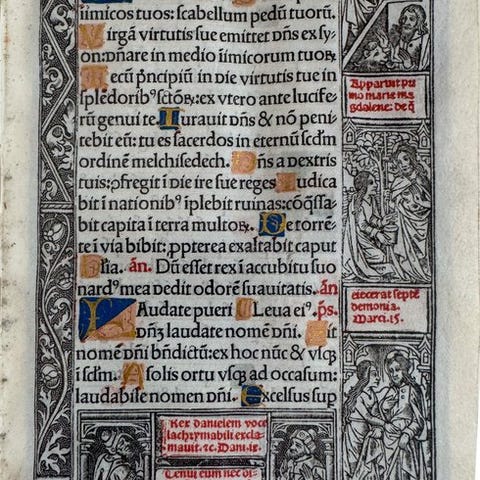 iimicos tuos: scabellum pedũ tuorũ.
Virgã virtutis sue emittet dñs ex sy-
on: dñare in medio iimicorum tuoꝝ
Tecũ p̃ncipiũ in die virtutis tue in
splẽdoribꝰ sctõꝝ: ex vtero ante lucife-
rũ genui te. Iurauit dñs & nõ peni
tebit eũ: tu es sacerdos in eternũ scd̃m
ordinẽ melchisedech. Dñs a dextris
tuis: ꝓfregit ĩ die ire sue reges Iudica
bit ĩ nationibꝰ ĩplebit ruinas: cõq̃ssa-
bit capita ĩ terra multoꝝ. De torrẽ-
te ĩ via bibit: ꝓpterea exaltabit caput
ãn. Dũ esset rex ĩ accubitu suo
nardꝰ mea dedit odorẽ suauitatis. ãn
Leua eiꝰ. p̃s.
LAudate pueri
dñʒ laudate nomẽ dñi. Sit
nomẽ dñi bñdictũ: ex hoc nũc & vsq̃
ĩ scl̃m. A solis ortu vsq̃ ad occasum:
laudabile nomen dñi. Excelsus sup
Apparuit pri
mo marie ma
gdalene: de q̃
eiecerat septẽ
demonia.
Marci. 15.
Rex danielem voce
lachrymabili excla-
mauit. ⁊c. Dani. ix.
Tenui eum nec di-